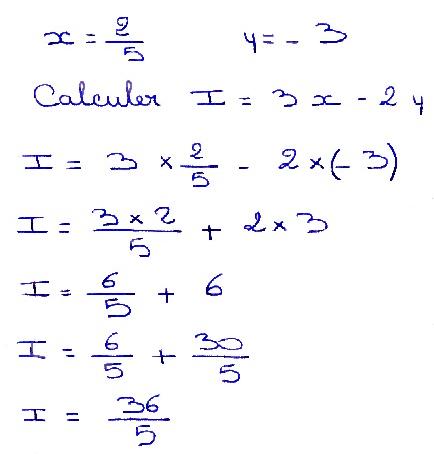 x = 2/5 y = - 3
Calculer I = 3 x - 2 y
I = 3 × 2/5 - 2 × (- 3)
I = 3 × 2/5 + 2 × 3
I = 6/5 + 6
I = 6/5 + 30/5
I = 36/5